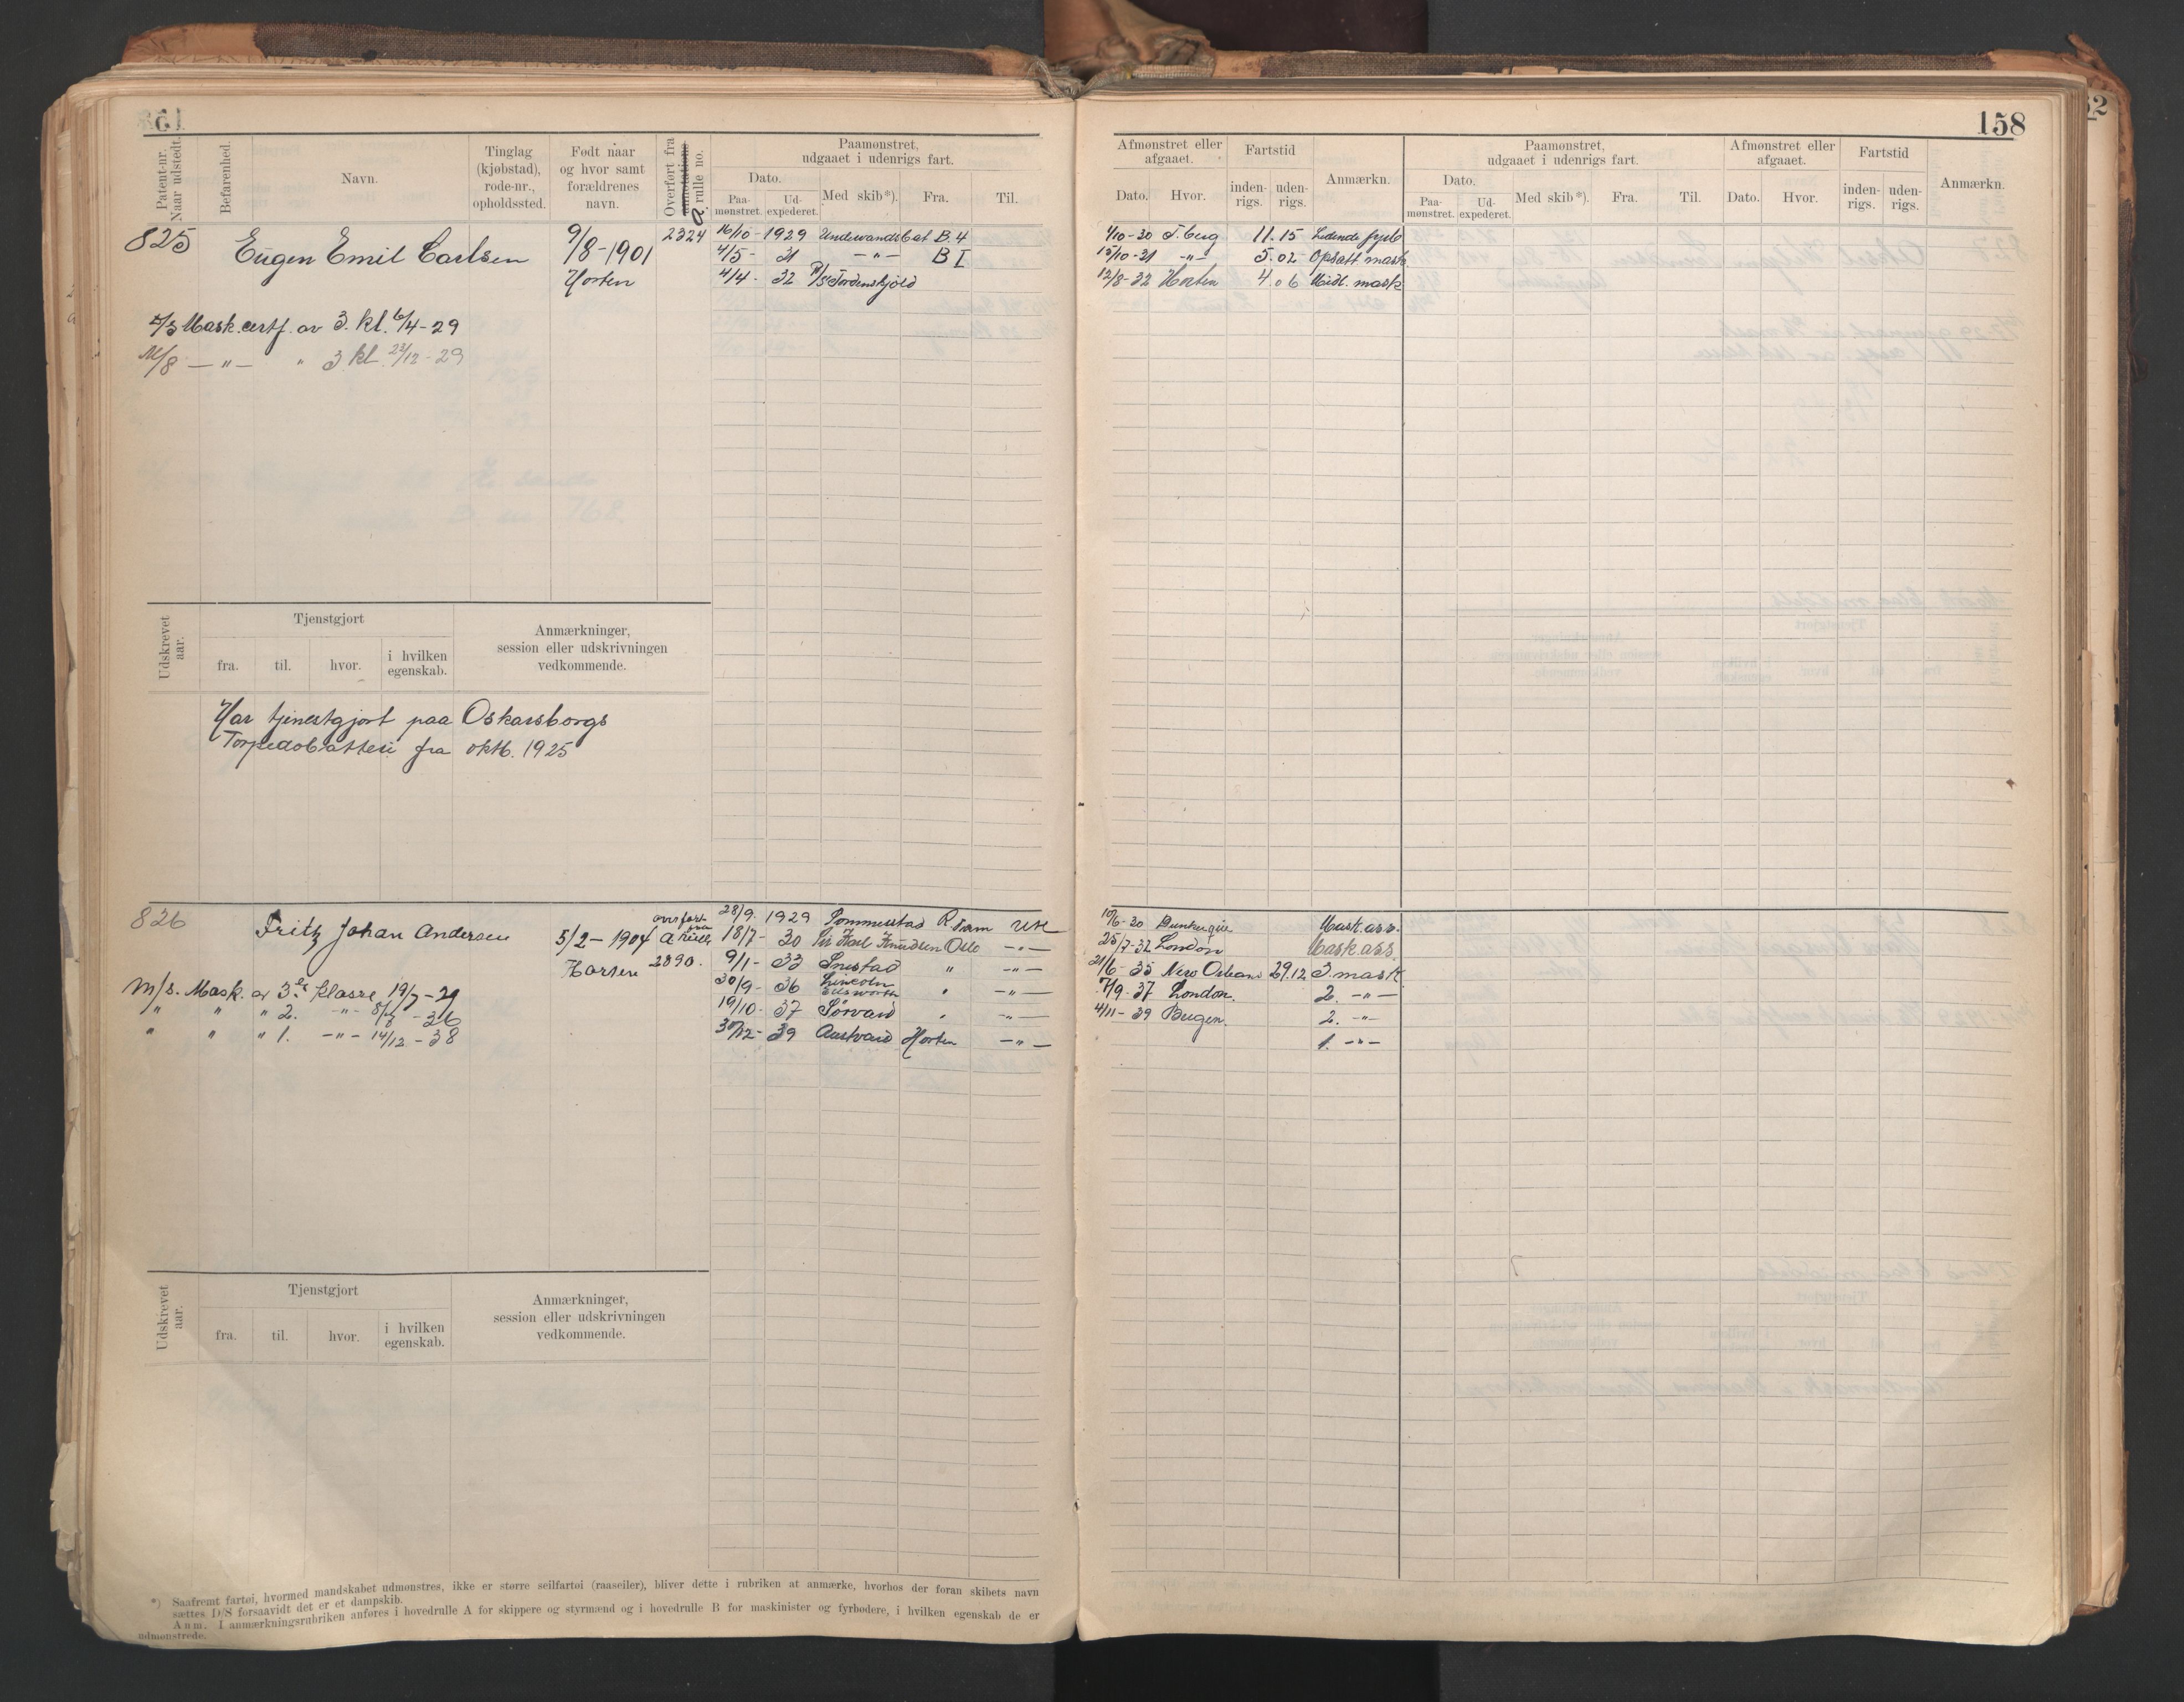 158
Patent-nr. Naar udstedt. Befarenhed. Navn. Tinglag (kjøbstad), rode-nr., opholdssted. Født naar og hvor samt forældrenes navn. Overført fra annotations A rulle no. Paamønstret, udgaaet i udenrigs fart.
Dato. Paa-mønstret. Ud-expederet. Med skib*). Fra. Til.
Afmønstret eller afgaaet. Dato. Hvor. Fartstid inden-rigs. uden-rigs. Anmærkn.
Paamønstret, udgaaet i udenrigs fart. Dato. Paa-mønstret. Ud-expederet. Med skib*). Fra. Til.
Afmønstret eller afgaaet. Dato. Hvor. Fartstid inden-rigs. uden-rigs. Anmærkn.
825 Eugen Emil Carlsen 9/8-1901 2324 16/10- 1929 Undervandsbåt B.4 T.berg 11.15 Ledende fyrb
4/5- 31 -"- B I 15/10-31 -"- 5.02 Opsatt mask
Horten 4/4- 32 P/S Tordenskjold 12/8-32 Horten 4.06 Midl. mask
D/S Mask.certf. av 3. kl. 6/4-29
M/S -"- " 3 kl. 23/12-29
Udskrevet aar. Tjenstgjort fra. til. hvor. i hvilken egenskab. Anmærkninger, session eller udskrivningen vedkommende.
Har tjenestgjort paa Oskarsborgs
Torpedobatteri fra oktb. 1925
826 Fritz Johan Andersen 5/2-1904 overført fra A rulle 2890. 28/9. 1929 Sommerstad R dam Utl 10/6-30 Mask.ass.
18/7- 30 Sir Karl Knudsen Oslo -"- 25/7-32 London Mask.ass.
Horten 9/1- 33 Snestad " -"- 21/6-35 New Orleans 29.12 3. mask.
M/S. Mask. av 3die klasse 19/7-29 30/9- 36 Lincoln Ellsworth " -"- 7/9-37 London. 2. -"-
" " " 2. -"- 8/7-36 19/10- 37 Sørvard " -"- 4/11-39 Bergen. 2. -"-
" " " 1. -"- 14/12-38 30/12- 39 Austvard Horten -"- 1. -"-
Udskrevet aar. Tjenstgjort fra. til. hvor. i hvilken egenskab. Anmærkninger, session eller udskrivningen vedkommende.
*) Saafremt fartøi, hvormed mandskabet udmønstres, ikke er større seilfartøi (raaseiler), bliver dette i rubriken at anmærke, hvorhos der foran skibets navn
sættes D/S forsaavidt det er et dampskib.
Anm. I anmærkningsrubriken anføres i hovedrulle A for skippere og styrmænd og i hovedrulle B for maskinister og fyrbødere, i hvilken egenskab de er
udmønstrede.